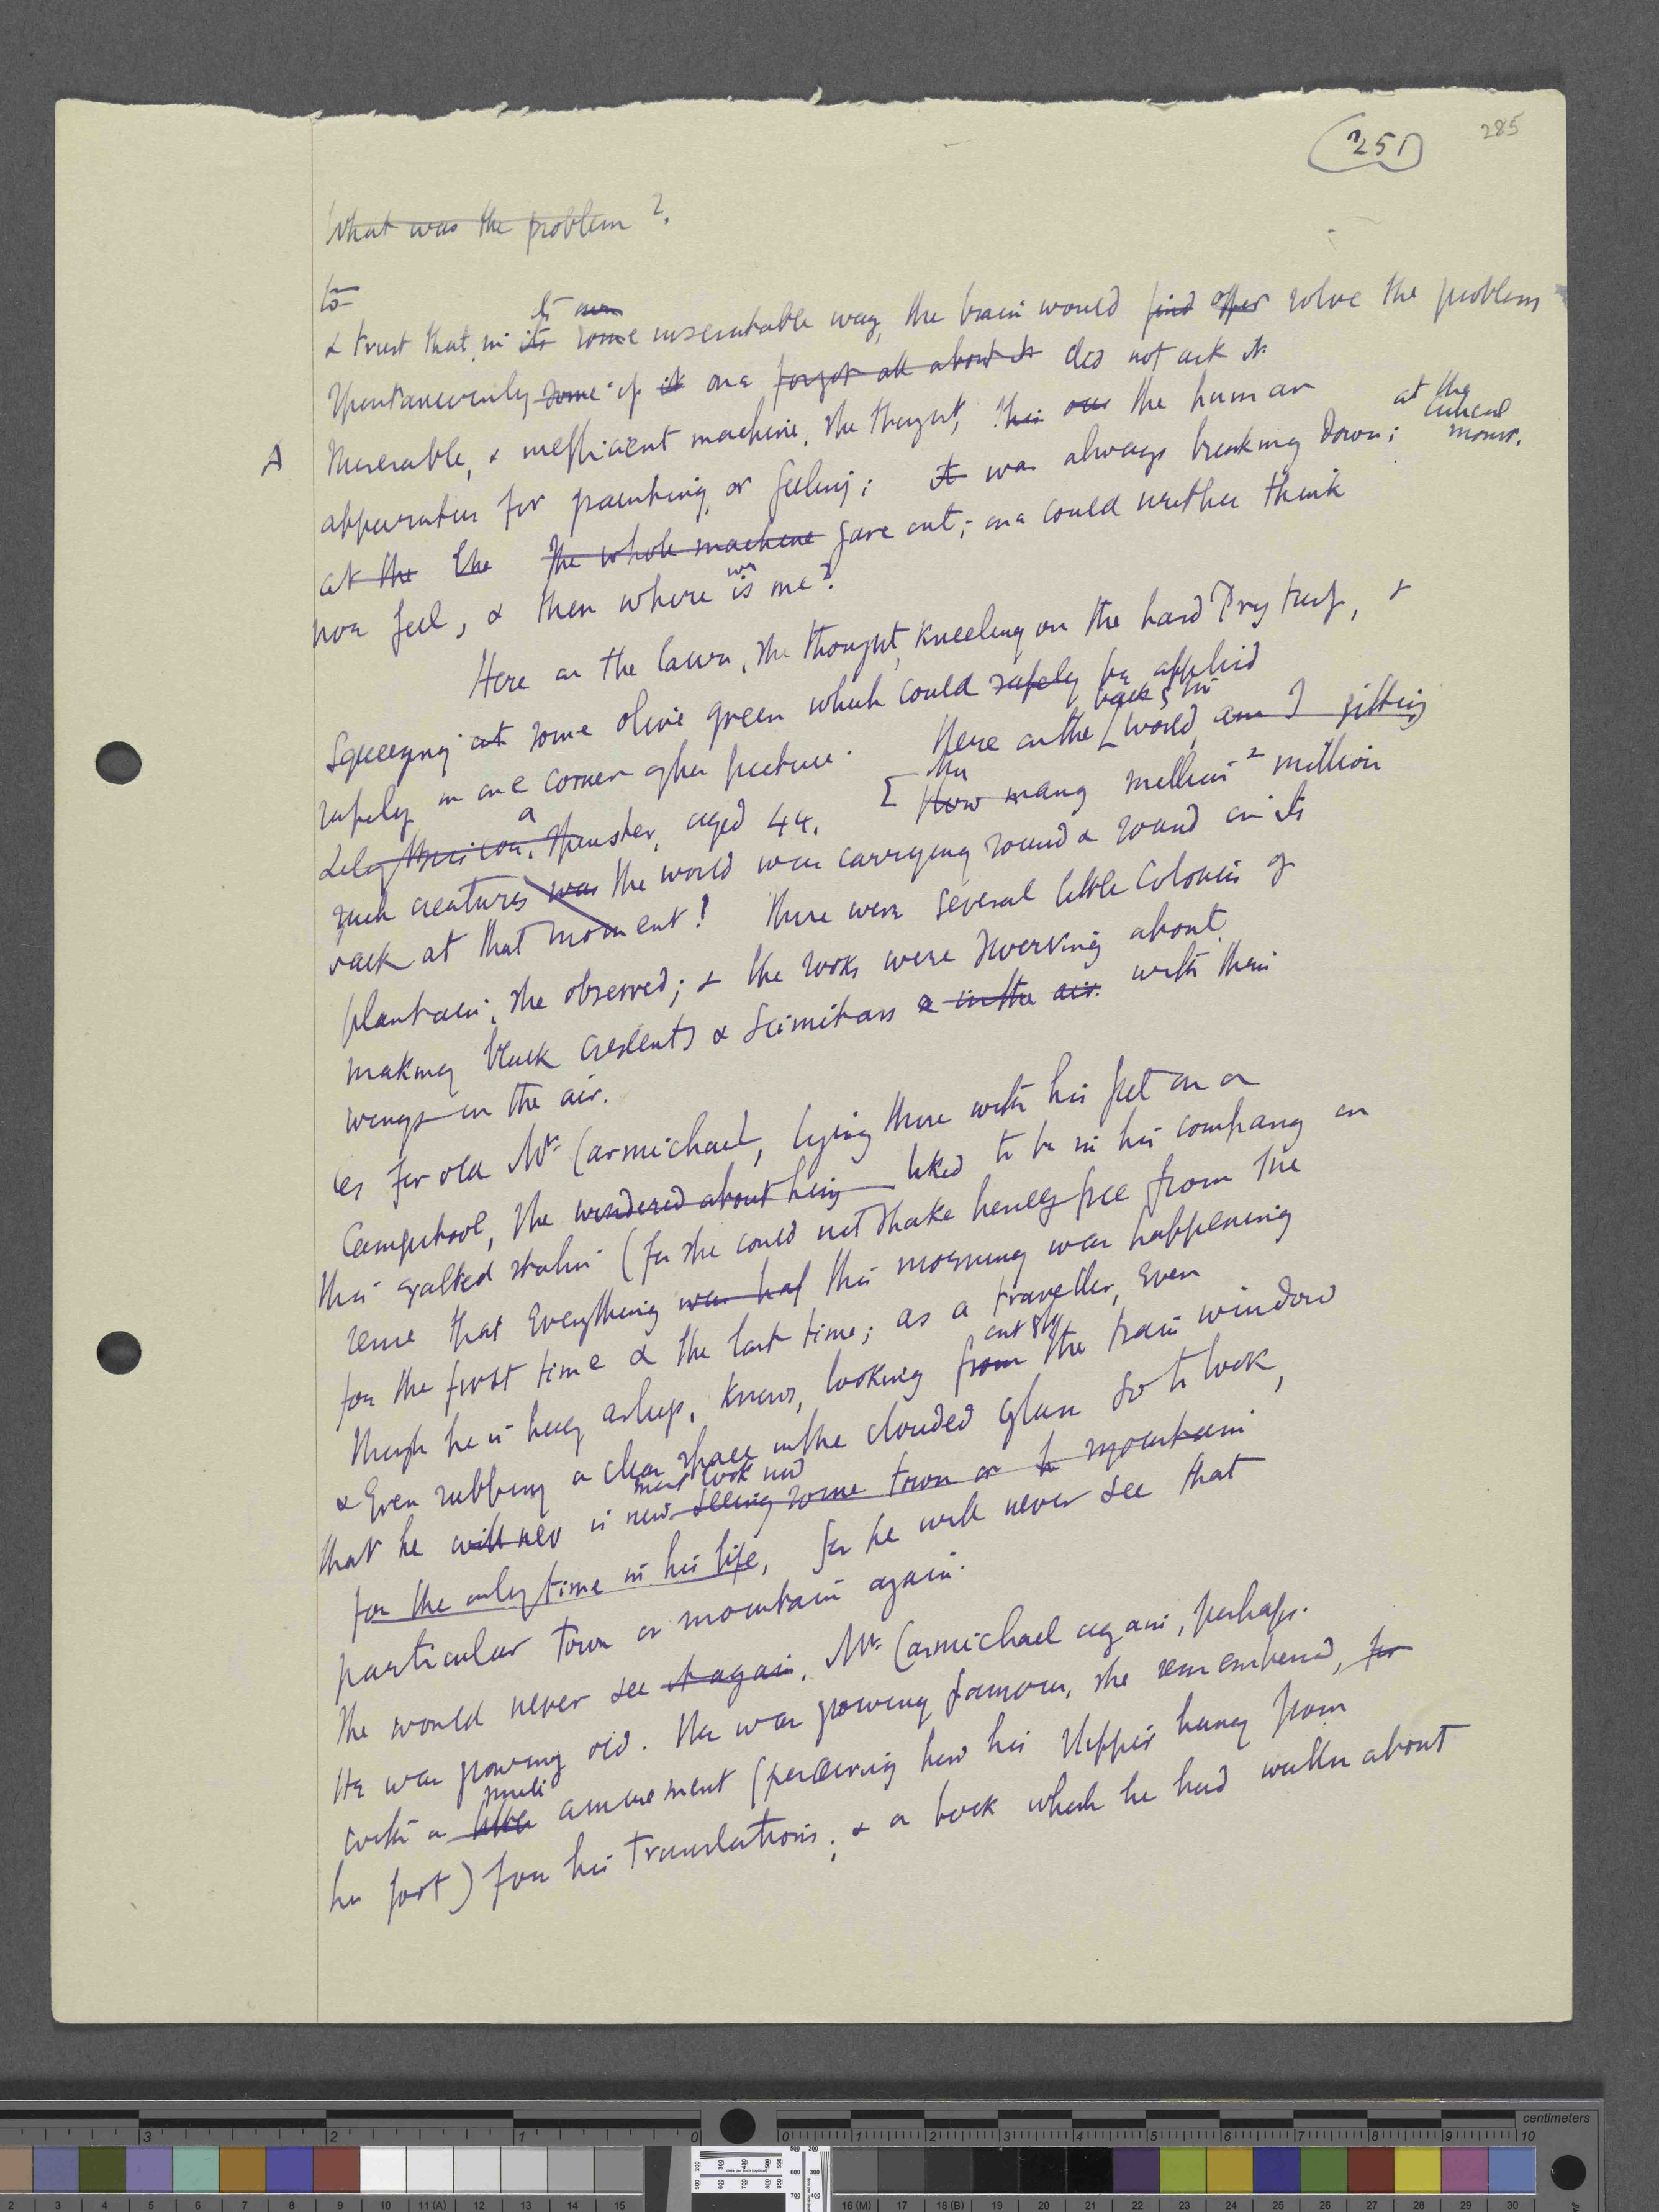 251
285
What was the problem?
to
its own
& trust that, in its some inscrutable way, the brain would find offer solve the problem
spontaneously some if it one forgot all about it did not ask it
at the
critical
moment.
A Miserable, & inefficient machine, she thought, this our the human
apparatus for painting, or feeling; it was always breaking down;
at the the the whole machine gave out; one could neither think
nor feel, & then where is me?
was
Here on the lawn, she thought, kneeling on the hard dry turf, &
Squeezing out some olive green which could safely be applied
safely in one corner of her picture. Here on the [world, am I sitting
Lily Briscoe, a spinster, aged 44. [ How many million 2 million
such creatures was the world was carrying round & round on its
back at that moment! There were several little colonies of
plantain, she observed; & the rooks were swerving about
making black crescents & scimitars & in the air. with their
wings in the air.
As for old Mr. Carmichael, lying there with his feet on a
Campstool, she wondered about him liked to be in his company on
this exalted station (for she could not shake herself free from the
sense that everything was had this morning was happening
for the first time & the last time; as a traveller, even
though he is half asleep, knows, looking from the train window
out of
& Even rubbing a clear space in the clouded glass so to look,
that he will nev is now seeing some town or h mountain
must look now
for the only time in his life, for he will never see that
particular town or mountain again.
She would never see it again. Mr. Carmichael again, perhaps.
He was growing old. He was growing famous, she remembered, for
with a little amusement (perceiving how his slipper hung from
smile
his foot) for his translations; & a book which he had written about
centimeters